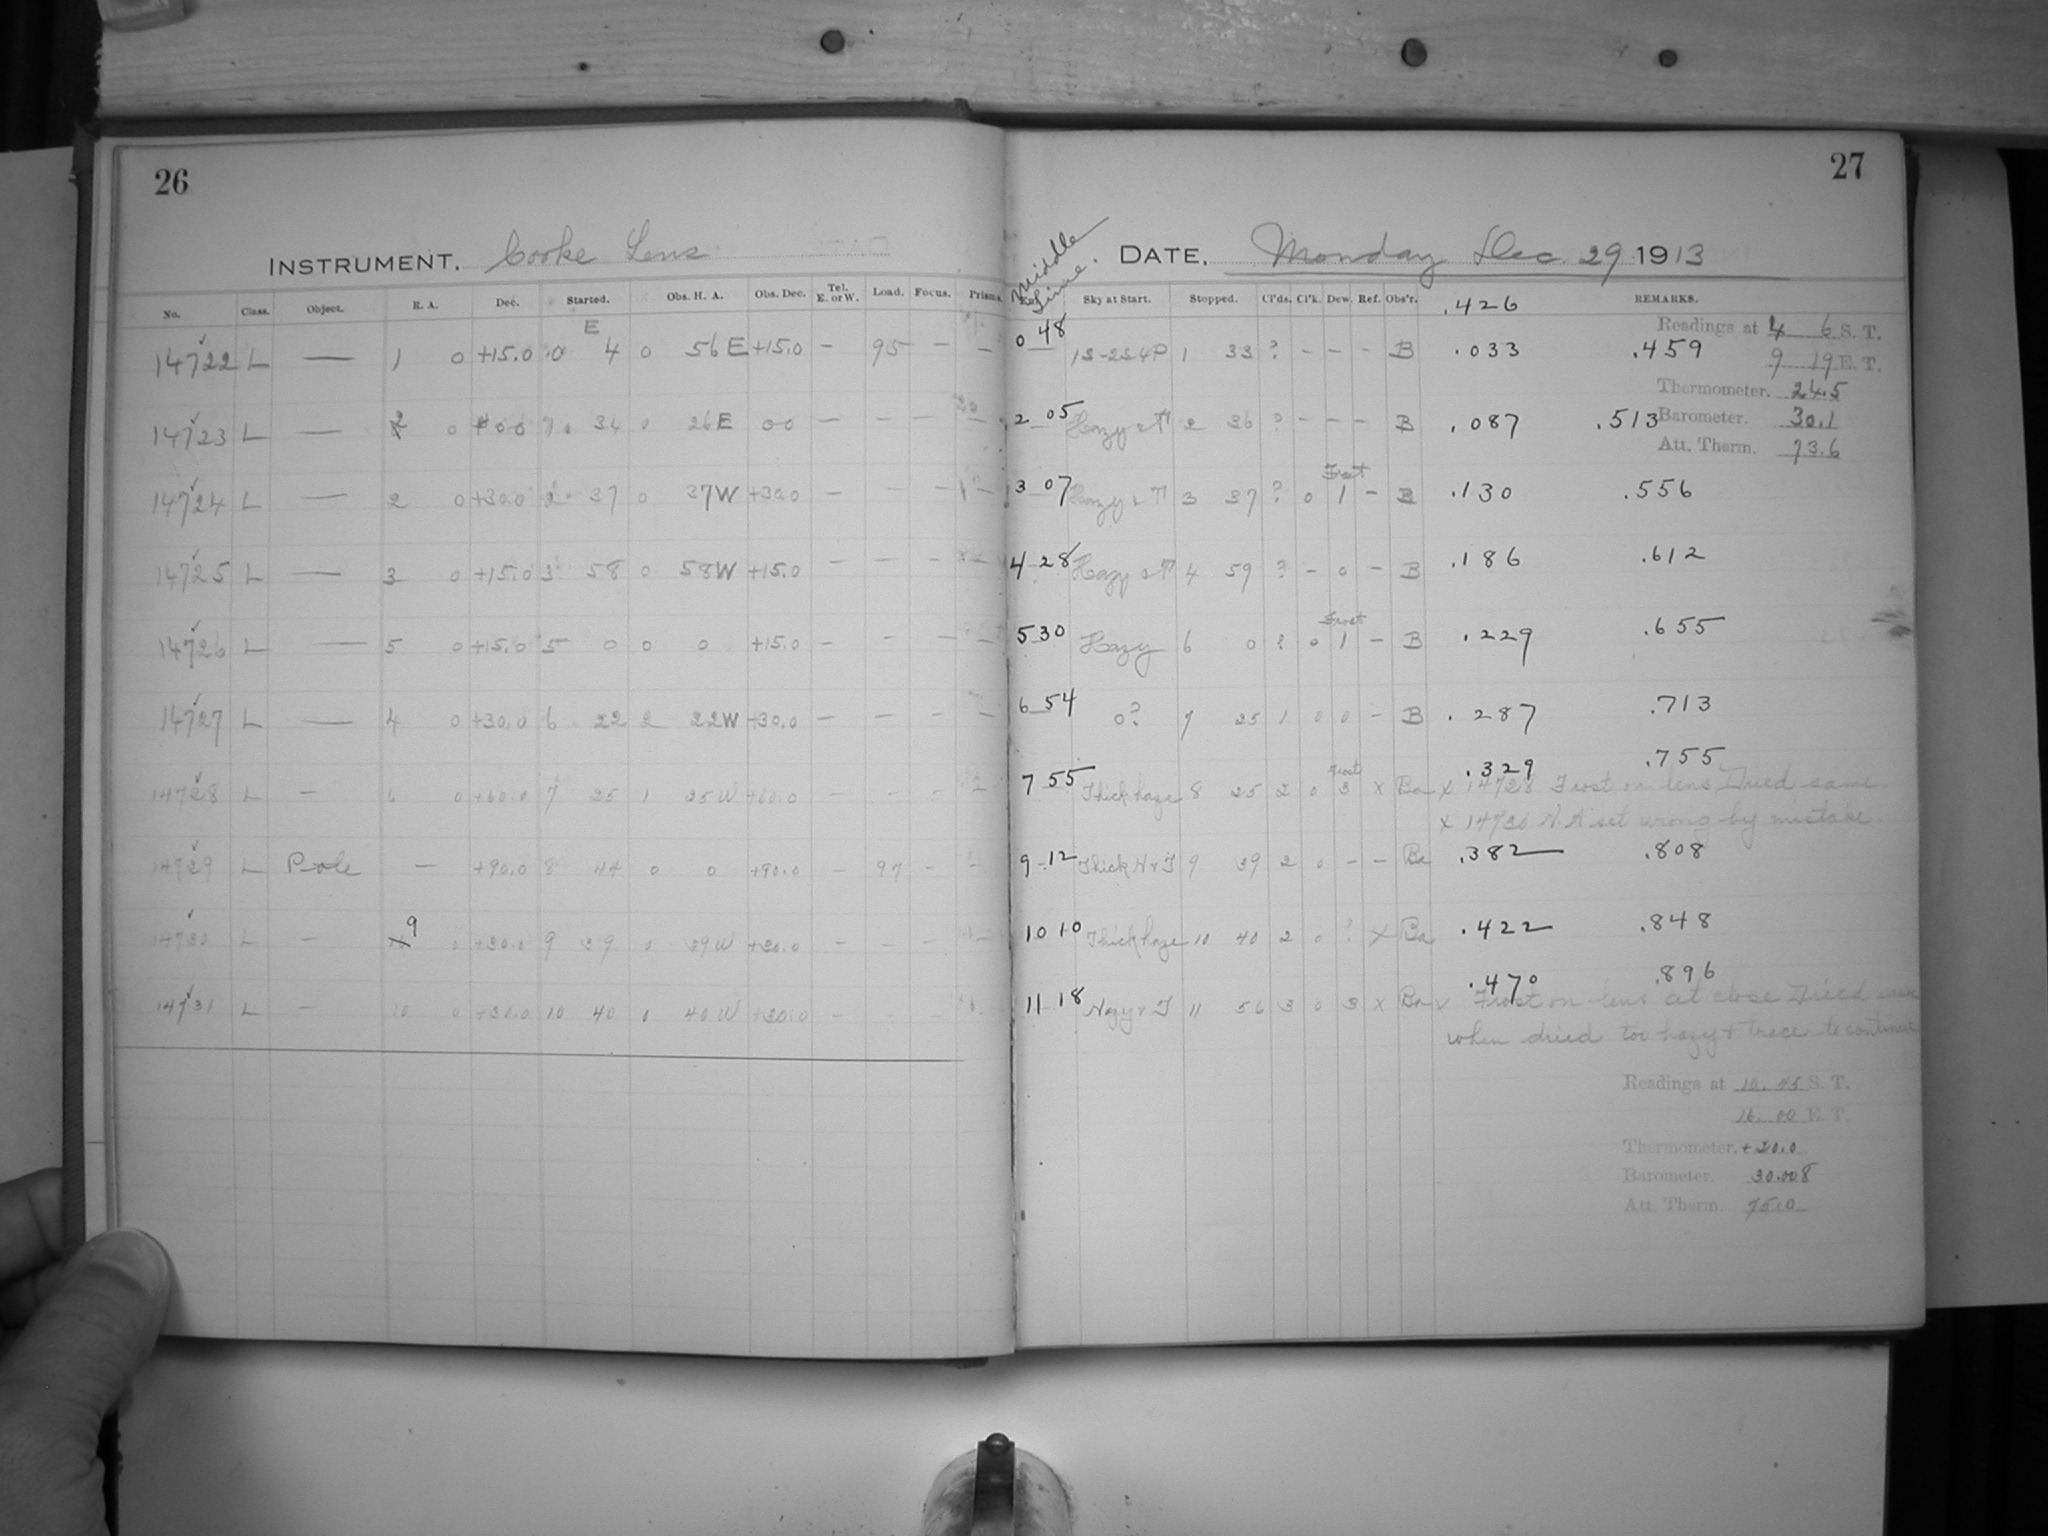 26
INSTRUMENT. Cooke Lens
No. Class. Object. R. A. Dec. Started. Obs. H. A. Obs. Dec. Tel. E. or W. Load. Focus. Prisms.
E
14722 L — 1 0 +15.0 0 4 0 56 E +15.0 — 95 — —
14723 L — 2 0 00 34 0 26 E 00 — — — —
14724 L — 2 0 +30.0 2 37 0 37 W +30.0 — — — —
14725 L — 3 0 +15.0 3 58 0 58 W +15.0 — — — —
14726 L — 5 0 +15.0 5 0 0 0 +15.0 — — — —
14727 L — 4 0 +30.0 6 22 2 22 W +30.0 — — — —
14728 L — 6 0 +60.0 7 25 1 25 W +60.0 — — — —
14729 L Pole — +90.0 8 44 0 0 +90.0 — 97 — —
14730 L — 9 0 +30.0 9 39 0 39 W +30.0 — — — —
14731 L — 10 0 +30.0 10 40 0 40 W +30.0 — — — —
27
Middle Time.
DATE. Monday Dec. 29 1913
Sky at Start. Stopped. Cl'ds. Cl'k. Dew. Ref. Obs'r. .426 REMARKS.
Readings at 4 6 S. T.
0 48 1 33 ? - - - B .033 .459
9 19 E. T.
Thermometer. 24.5
2 05 Hazy & T 2 36 ? - - - B .087 .513
Barometer. 30.1
Att. Therm. 73.6
Frost
3 07 Hazy & T 3 37 ? 0 1 - B .130 .556
4 28 Hazy & T 4 59 ? - 0 - B .186 .612
Frost
5 30 Hazy 6 0 ? 0 1 - B .229 .655
6 54 0? 7 25 1 0 0 - B .287 .713
Frost .329 .755
7 55 Thick haze 8 25 2 0 3 x Ba x 14728 Frost on lens Dried same
x 14730 H.A set wrong by mistake.
9 12 Thick H & T 9 39 2 0 - - Ba .382 .808
10 10 Thick haze 10 40 2 0 ? x Ba .422 .848
.470 .896
11 18 Hazy & T 11 56 3 0 3 x Ba x Frost on lens at close Dried same
when dried too hazy & trece to continue
Readings at 10. 45 S. T.
16. 00 E. T.
Thermometer. +20.0
Barometer. 30.008
Att. Therm. 75.0